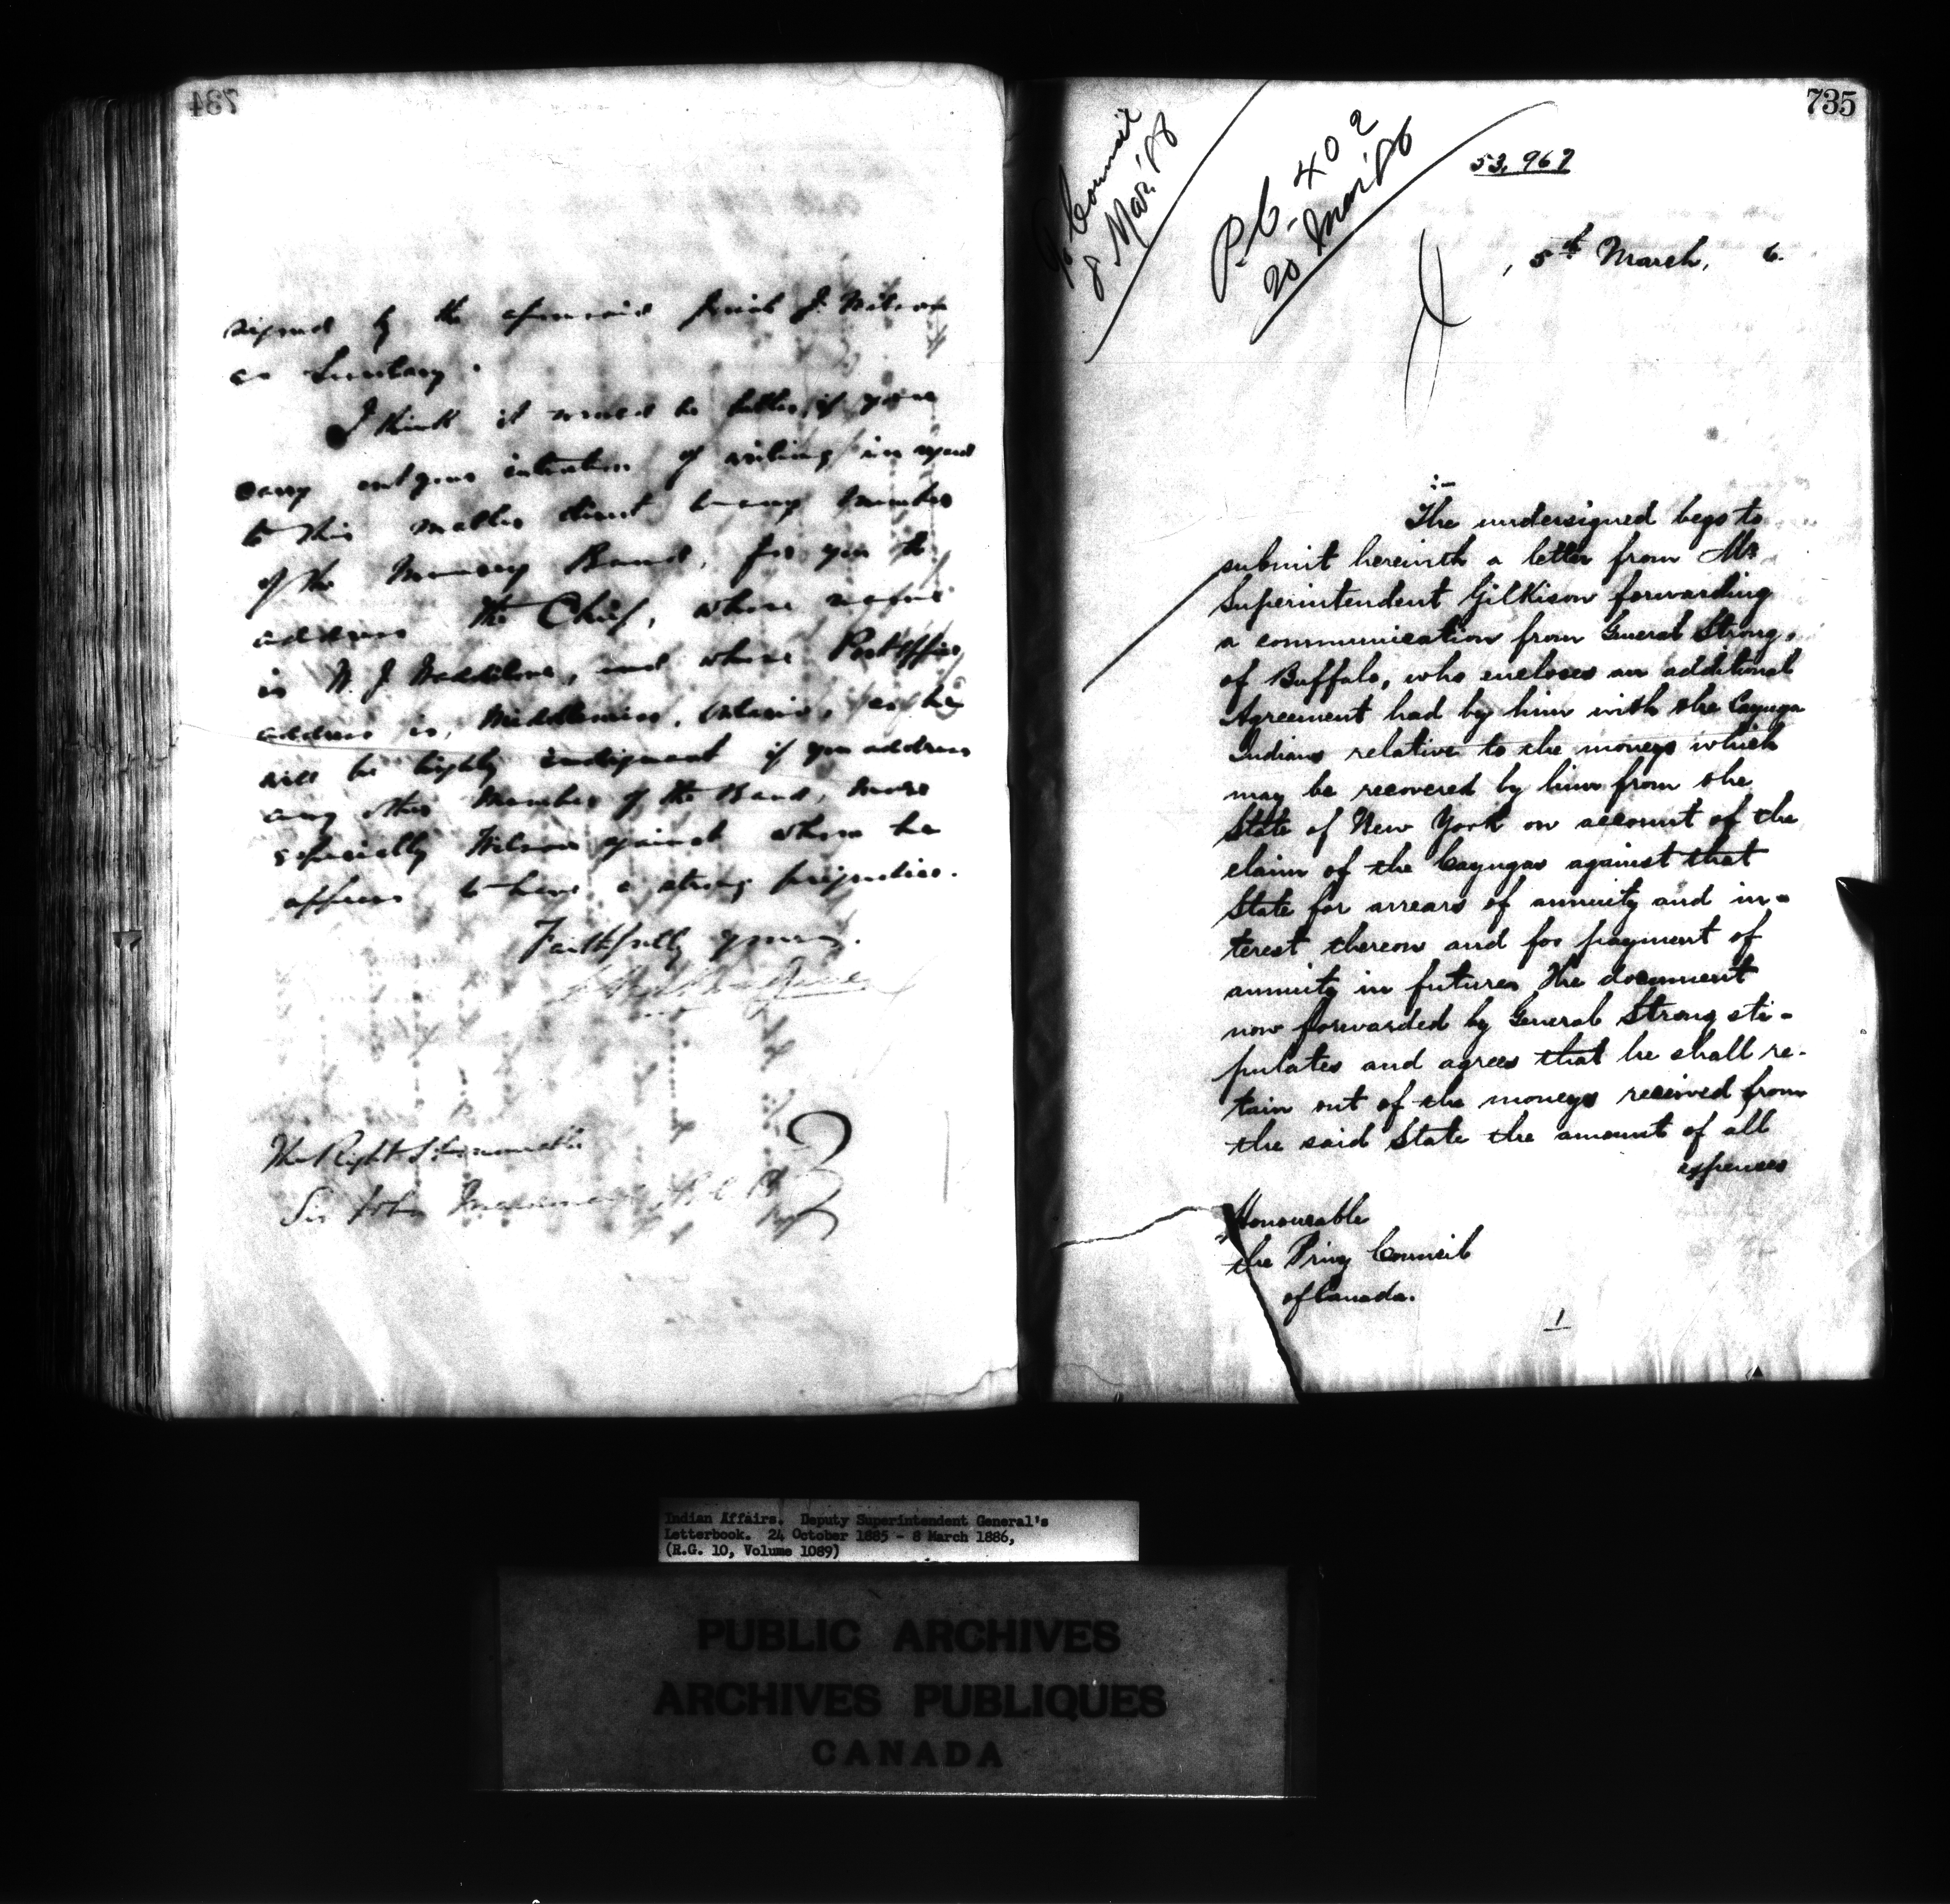 734
signed by the aforesaid J. Wilson
as Secretary.
I think it would be better if you
carry out your intention of writing in regard
to this matter direct to any member
of the Munsey Band, for you to
address the Chief, whose name
is W. J. Waddilove, and whose Post Office
address is, Middlemiss, Ontario, as he
will be highly indignant if you address
any other Member of the Band, more
especially Wilson against whom he
appears to have a strong prejudice.
Faithfully yours,
The Right Honourable
Sir John Macdonald
735
To Council
8 Mar '86
P.C. 402
20 Mar '86
53,967
, 5th March, 6.
:-
The undersigned begs to
submit herewith a letter from Mr
Superintendent Gilkison forwarding
a communication from General Strong,
of Buffalo, who encloses an additional
Agreement had by him with the Cayuga
Indians relative to the moneys which
may be recovered by him from the
State of New York on account of the
claim of the Cayugas against that
State for arrears of annuity and in-
terest thereon and for payment of
annuity in future. The document
now forwarded by General Strong sti-
pulates and agrees that he shall re-
tain out of the moneys received from
the said State the amount of all
expenses
Honourable
the Privy Council
of Canada.
1
Indian Affairs. Deputy Superintendent General's
Letterbook. 24 October 1885 - 8 March 1886,
(R.G. 10, Volume 1089)
PUBLIC ARCHIVES
ARCHIVES PUBLIQUES
CANADA